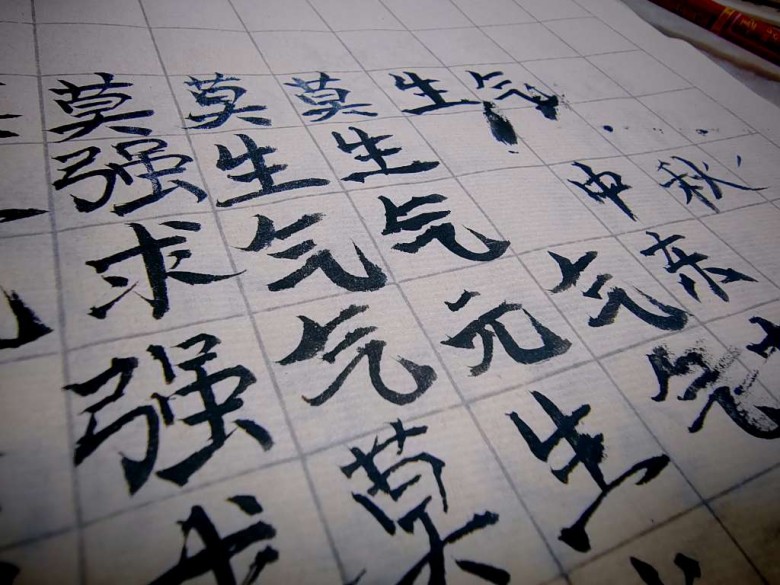 莫莫莫生气
强生生
求气气中秋
强气元气
求莫生气